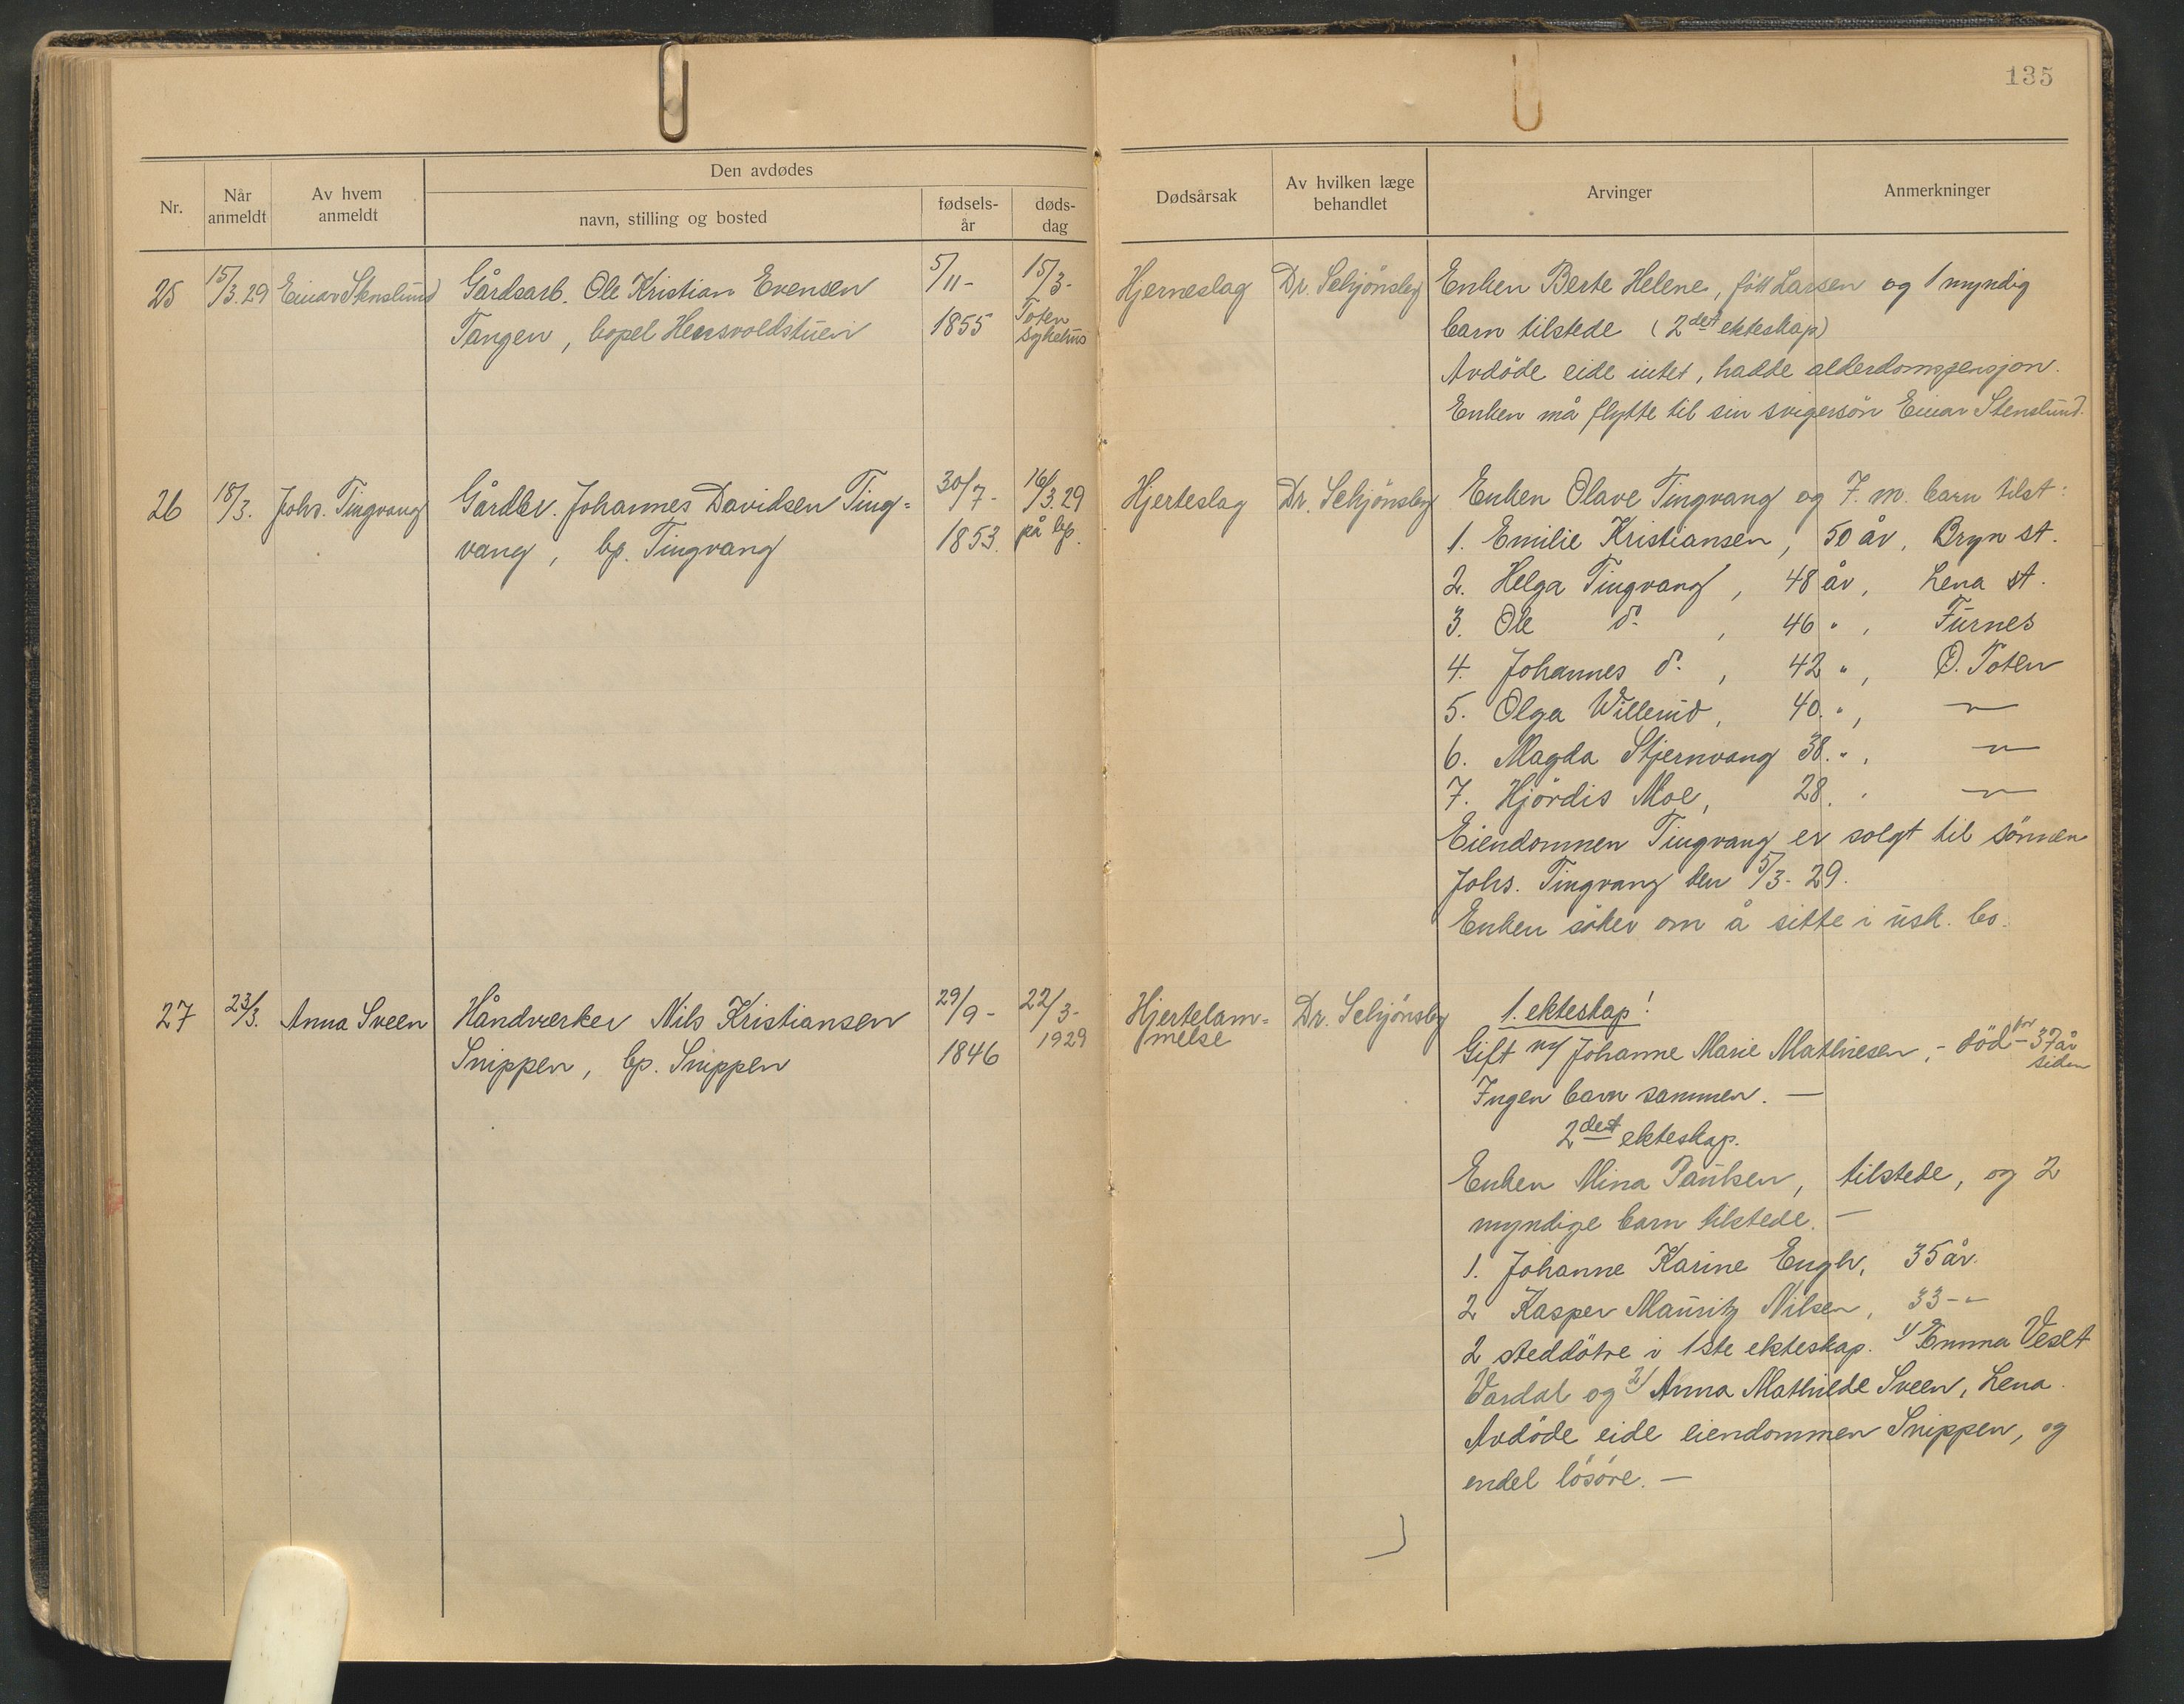 135
Den avdødes
Nr.
Når anmeldt
Av hvem anmeldt
navn, stilling og bosted
fødsels-år
døds-dag
Dødsårsak
Av hvilken læge behandlet
Arvinger
Anmerkninger
25 15/3.29 Einar Stenslund Gårdsarb. Ole Kristian Evensen 5/11- 15/3-
Tangen, bopel 1855 Toten sykehus
Hjerneslag Dr. Schjönsby Enken Berte Helene, fött Larsen og 1 myndig
barn tilstede (2det ekteskap)
Avdöde eide intet, hadde alderdomspensjon.
Enken må flytte til sin svigersön Einar Stenslund.
26 18/3. Johs. Tingvang Gårdbr. Johannes Davidsen Ting= 30/7- 16/3.29
vang, bp. Tingvang 1853. på bp.
Hjerteslag Dr. Schjönsby Enken Olave Tingvang og 7. m. barn tilst:
1. Emilie Kristiansen, 50 år, Bryn st.
2. Helga Tingvang, 48 år, Lena st.
3. Ole do , 46 " , Furnes
4. Johannes do , 42 " , Ö. Toten
5. Olga Willerud, 40. " , —"—
6. Magda Stjernvang 38. " , —"—
7. Hjördis Moe, 28. " —"—
Eiendommen Tingvang er solgt til sönnen
Johs. Tingvang den 5/3- 29.
Enken söker om å sitte i usk. bo.
27 23/3. Anna Sveen Håndverker Nils Kristiansen 29/9- 22/3-
Snippen, bp. Snippen 1846 1929
Hjertelam=
melse
Dr. Schjönsby 1. ekteskap!
Gift m/ Johanne Marie Mathiesen, - död for - 37 år siden
Ingen barn sammen. —
2det ekteskap.
Enken Mina Paulsen, tilstede, og 2
myndige barn tilstede. —
1. Johanne Karine Engh, 35 år.
2 Kasper Mauritz Nilsen, 33 - "
2 steddötre i 1ste ekteskap. 1/ Emma Veset
Vardal og 2/ Anna Mathilde Sveen, Lena.
Avdöde eide eiendommen Snippen, og
endel lösöre. —